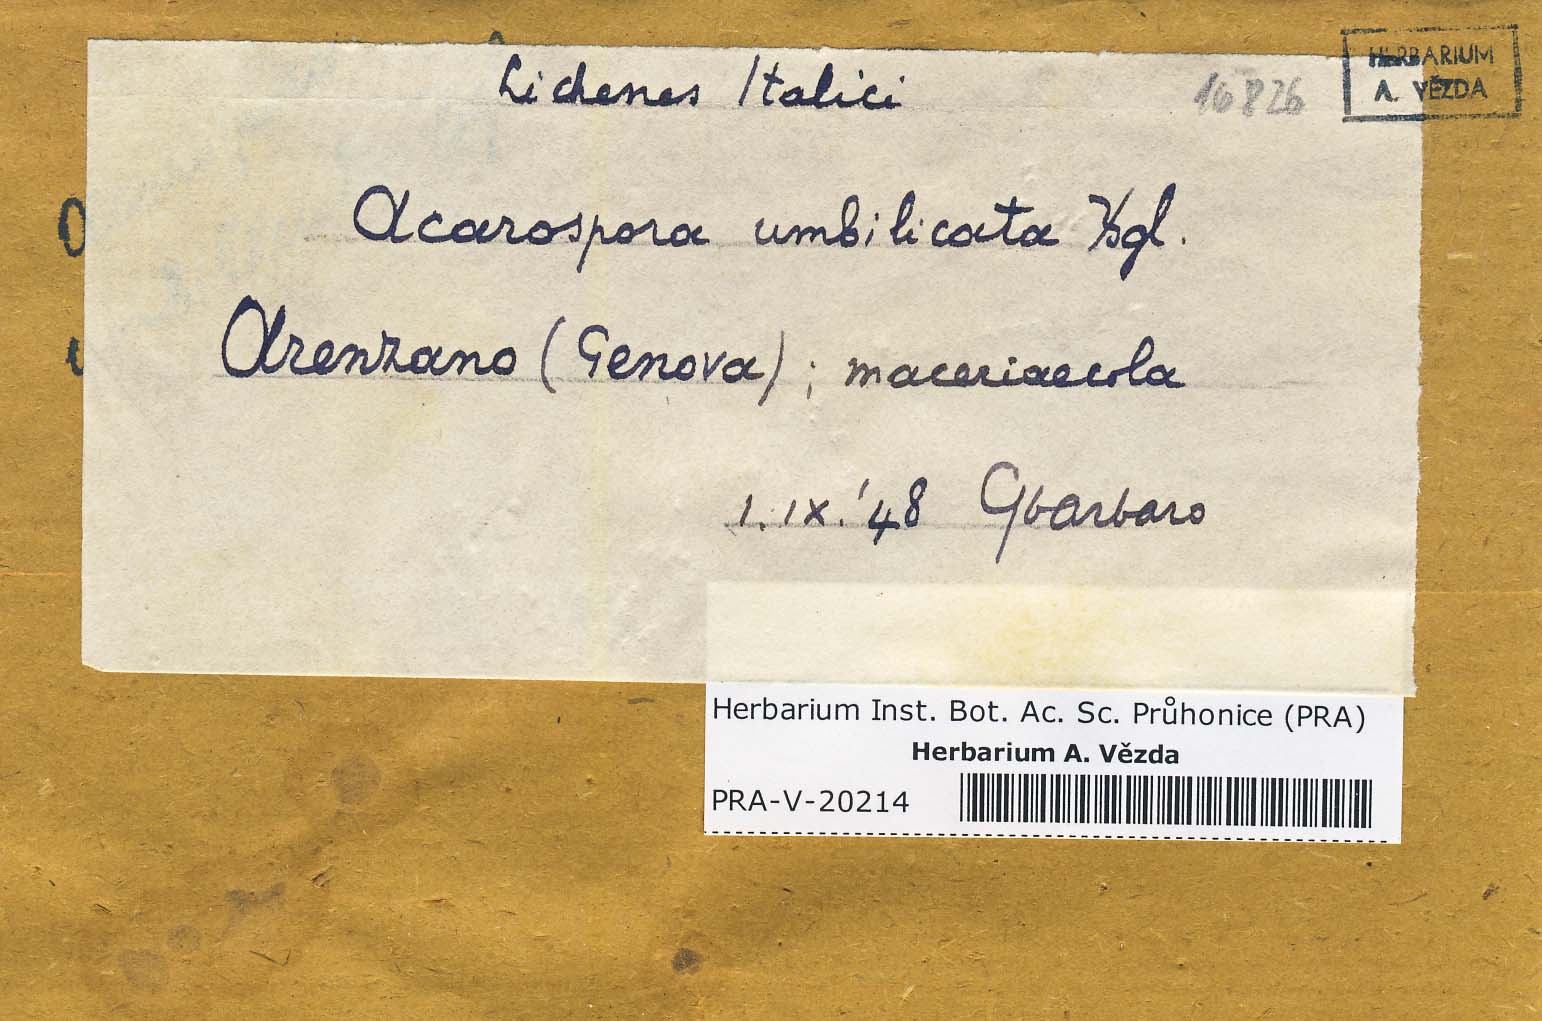 Lichenes Italici
16826
HERBARIUM
A. VĚZDA
Acarospora umbilicata Bgl.
Arenzano (Genova); maceriaecola
1.IX.'48 Gbarbaro
Herbarium Inst. Bot. Ac. Sc. Průhonice (PRA)
Herbarium A. Vězda
PRA-V-20214